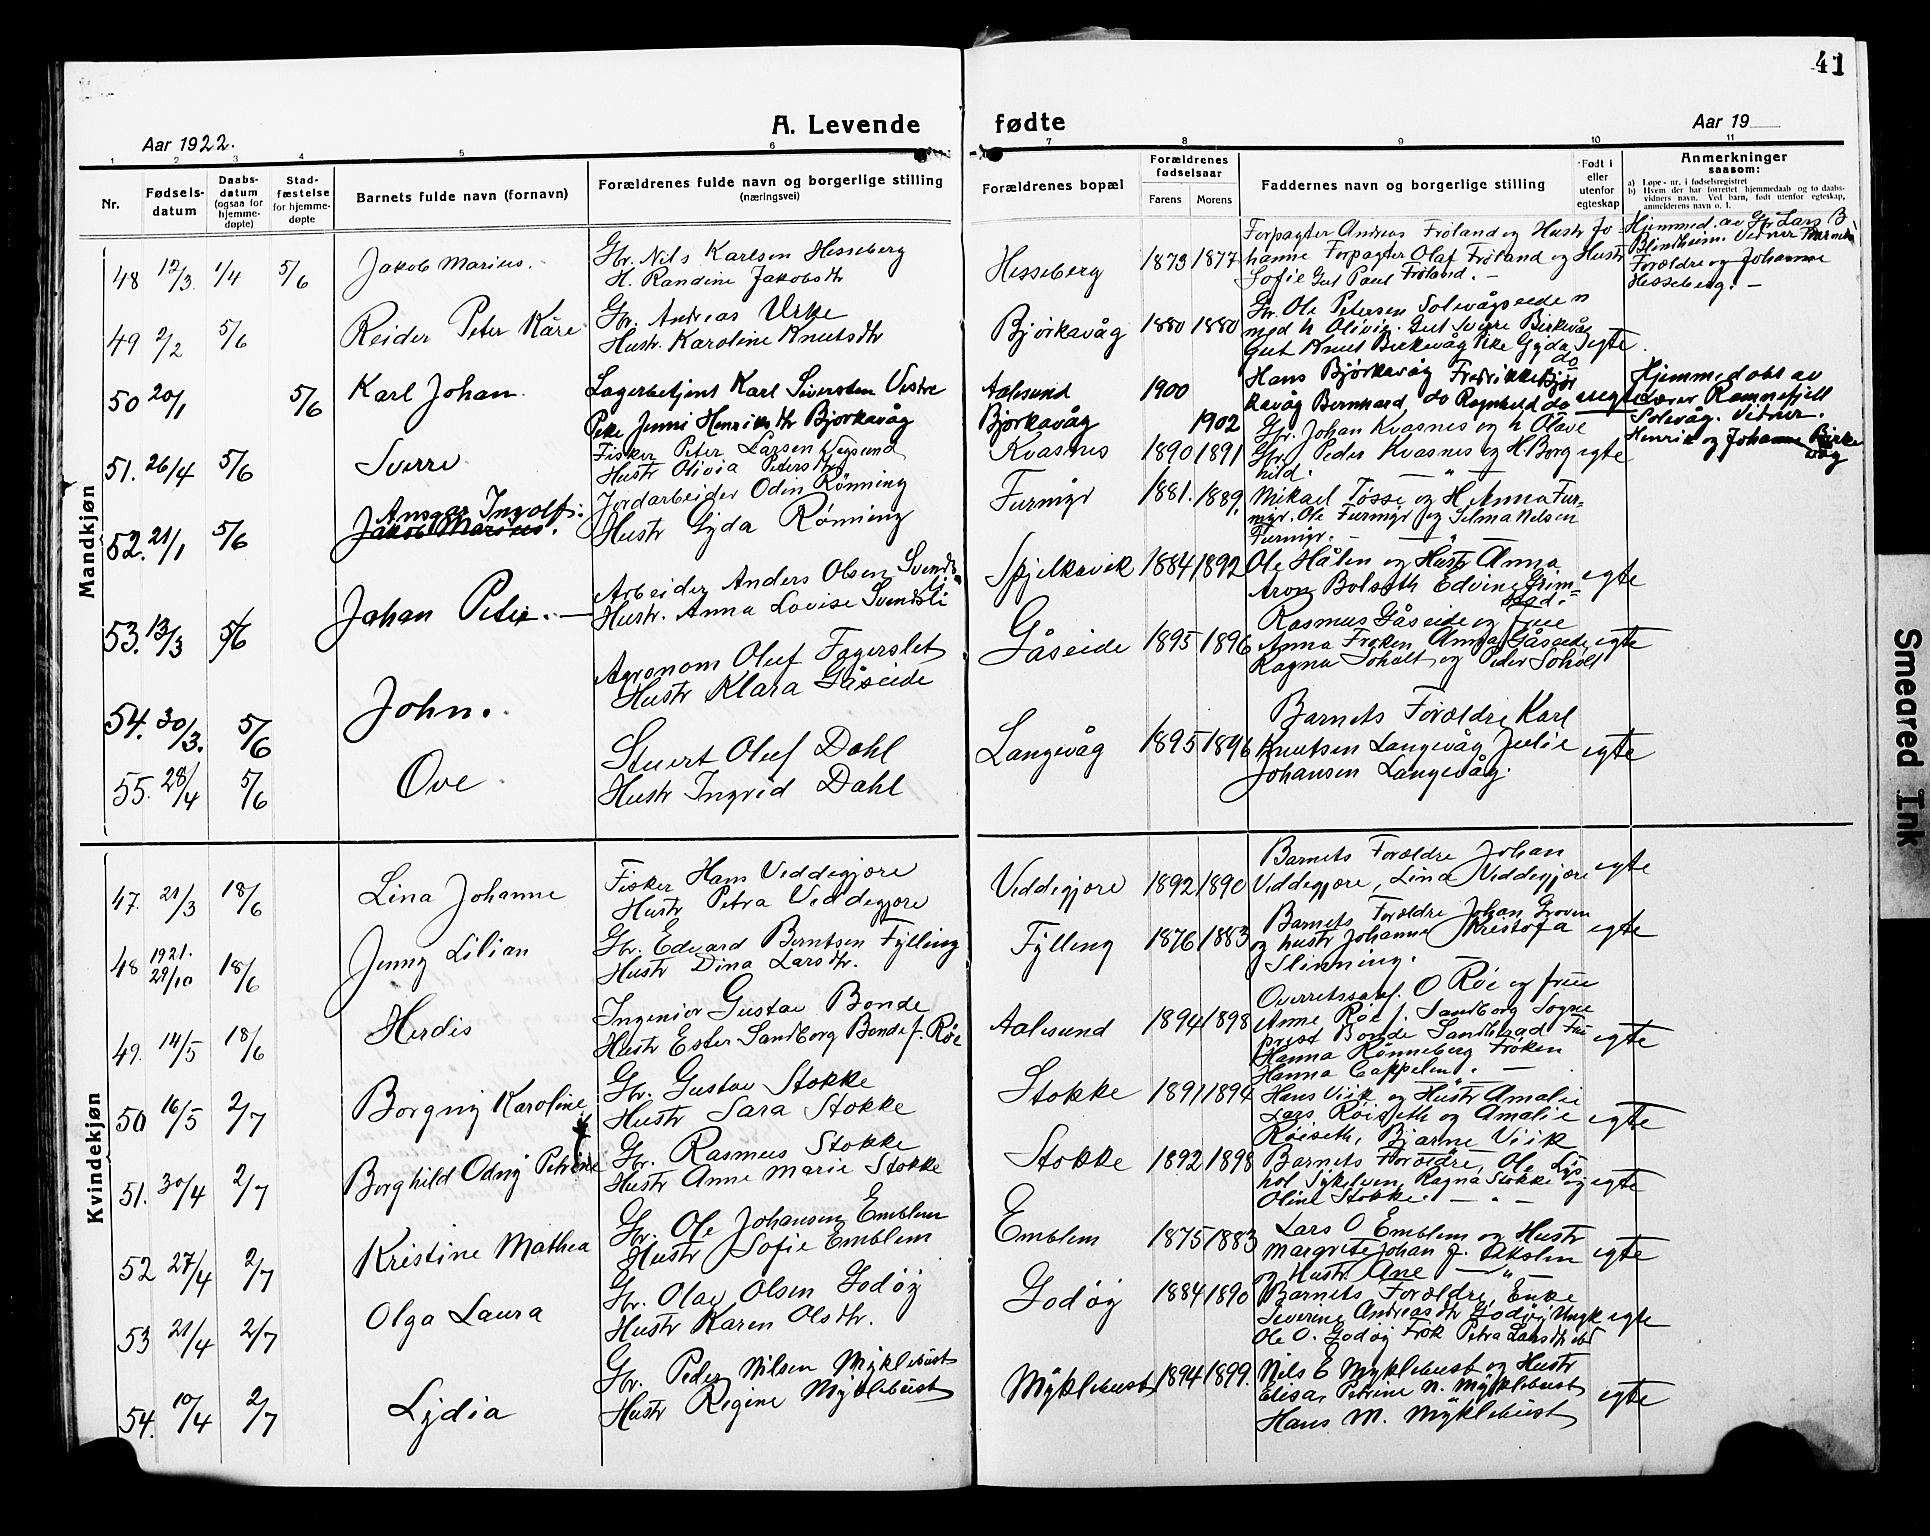 41
A. Levende fødte
Aar 1922.
Aar 19
1 2 3 4 5 6 7 8 9 10 11
Nr.
Fødsels-
datum
Daabs-
datum
(ogsaa for
hjemme-
døpte)
Stad-
fæstelse
for hjemme-
døpte
Barnets fulde navn (fornavn)
Forældrenes fulde navn og borgerlige stilling
(næringsvei)
Forældrenes bopæl
Forældrenes
fødselsaar
Farens Morens
Faddernes navn og borgerlige stilling
Født i
eller
utenfor
egteskap
Anmerkninger
saasom:
a) Løpe-nr. i fødselsregistret
b) Hvem der har forrettet hjemmedaab og to daabs-
vidners navn. Ved barn, født utenfor egteskap,
anmelderens navn o. l.
Mandkjøn
48 12/3 1/4 5/6 Jakob Marius.
Gbr. Nils Karlsen Hesseberg
H. Randine Jakobsdtr
Hesseberg 1873 1877
Forpagter Andreas Frøland og Hustr Jo-
hanne Forpagter Olaf Frøland og Hustr
Sofie Gut Paul Frøland. —
Hjemmed. av Gb. Lars B
Blindheim. Vidner Barnets
Forældre og Johanne
Hesseberg. —
49 2/2 5/6 Reidar Peter Kåre
Gbr. Andreas Urke
Hustr. Karoline Knutsdtr
Bjørkavåg 1880 1880
Gbr. Ole Petersen Solevågseiden
med h Olivia. Gut Sverre Birkevåg
Gut Knut Birkevåg Pike Gyda do
egte
50 20/1 5/6 Karl Johan
Lagerbetjent Karl Sivertsen Vestre
Pike Jenni Henriksdtr Bjørkavåg
Aalesund 1900
Bjørkavåg 1902
Hans Bjørkavåg Fredrikke Bjør
kavåg Bernhard do Ragnhild do
uegte
Hjemmedøbt av
Lærer Rammefjell
Solevåg. Vidner.
Henrik og Johanne Birke
våg
51. 26/4 5/6 Sverre
Fisker Peter Larsen Vegsund
Hustr Olivia Petersdtr
Kvasnes 1890 1891
Gbr. Johan Kvasnes og h Olave
Gbr. Peder Kvasnes og H. Borg
hild. — " —
egte
52. 21/1 5/6 Ansgar Ingolf.
Jakob Marius.
Jordarbeider Odin Rønning
Hustr Gyda Rønning
Furmyr 1881. 1889.
Mikael Tøsse og H. Anna Fur-
myr. Ole Furmyr og Selma Nilsen
Furmyr. — " —
53. 13/3 5/6 Johan Peter. —
Arbeider Anders Olsen Svendsli
Hustr. Anna Lovise Svendsli
Spjelkavik 1884 1892
Ole Hålen og Hustr Anna
Aron Bolseth Edvine Grim-
stad.
egte
54. 30/3. 5/6 John.
Agronom Oluf Fagerslet
Hustr Klara Gåseide
Gåseide 1895 1896
Rasmus Gåseide og Frue
Anna Frøken Anna Gåseide
Ragna Soholt og Peder Soholt
egte
55. 28/4 5/6 Ove
Stuert Oluf Dahl
Hustr Ingrid Dahl
Langevåg 1895 1896
Barnets Forældre Karl
Knutsen Langevåg Julie
Johansen Langevåg.
egte
Kvindekjøn
47. 21/3 18/6 Lina Johanne
Fisker Hans Veddegjøre
Hustr Petra Veddegjøre
Veddegjøre 1892 1890
Barnets Forældre Johan
Veddegjøre, Lina Veddegjøre
egte
48 1921. 29/10 18/6 Jenny Lilian
Gbr. Edvard Berntsen Fylling
Hustr Dina Larsdtr.
Fylling 1876 1883
Barnets Forældre Johan Groven
og hustr Johanne Kristofa
Slinning. —
egte
49. 14/5 18/6 Herdis
Ingeniør Gustav Bonde
Hustr Ester Sandborg Bonde f. Röe
Aalesund 1894 1898
Overretssakf. O Röe og frue
Anne Röe f. Sandborg Sogne
prest Bonde Sandstad Fru
Hanna Rønneberg Frøken
Hanna Cappelen. —
egte
50 16/5 2/7 Borgny Karoline
Gbr. Gustav Stokke
Hustr Sara Stokke
Stokke 1891 1894
Hans Viik og Hustr Amalie
Lars Røiseth og Amalie
Røiseth, Bjarne Viik
egte
51. 30/4 2/7 Borghild Odny Petrine
Gbr. Rasmus Stokke
Hustr Anne Marie Stokke
Stokke 1892 1898
Barnets Forældre, Ole Lys
hol Sykelven, Ragna Stokke og
Oline Stokke. — " —
egte
52 27/4 2/7 Kristine Mathea
Gbr. Ole Johansen Emblem
Hustr Sofie Emblem
Emblem 1875 1883
Lars O Emblem og Hustr
Margrete Johan J. Akslen
og Hustr. Ane — " —
egte
53 21/4 2/7 Olga Laura
Gbr. Olav Olsen Godøy
Hustr Karen Olsdtr.
Godøy 1884 1890
Barnets Forældre, Enke
Severine Andreasdtr Godøy, Ungk
Ole O. Godøy Frøk Petra Larsdtr ibd
egte
54. 10/4 2/7 Lydia
Gbr. Peder Nilsen Myklebust
Hustr Regine Myklebust
Myklebust 1894 1899.
Nils E Myklebust og Hustr
Elisa, Petrine N. Myklebust
Hans M. Myklebust
egte
Smeared Ink